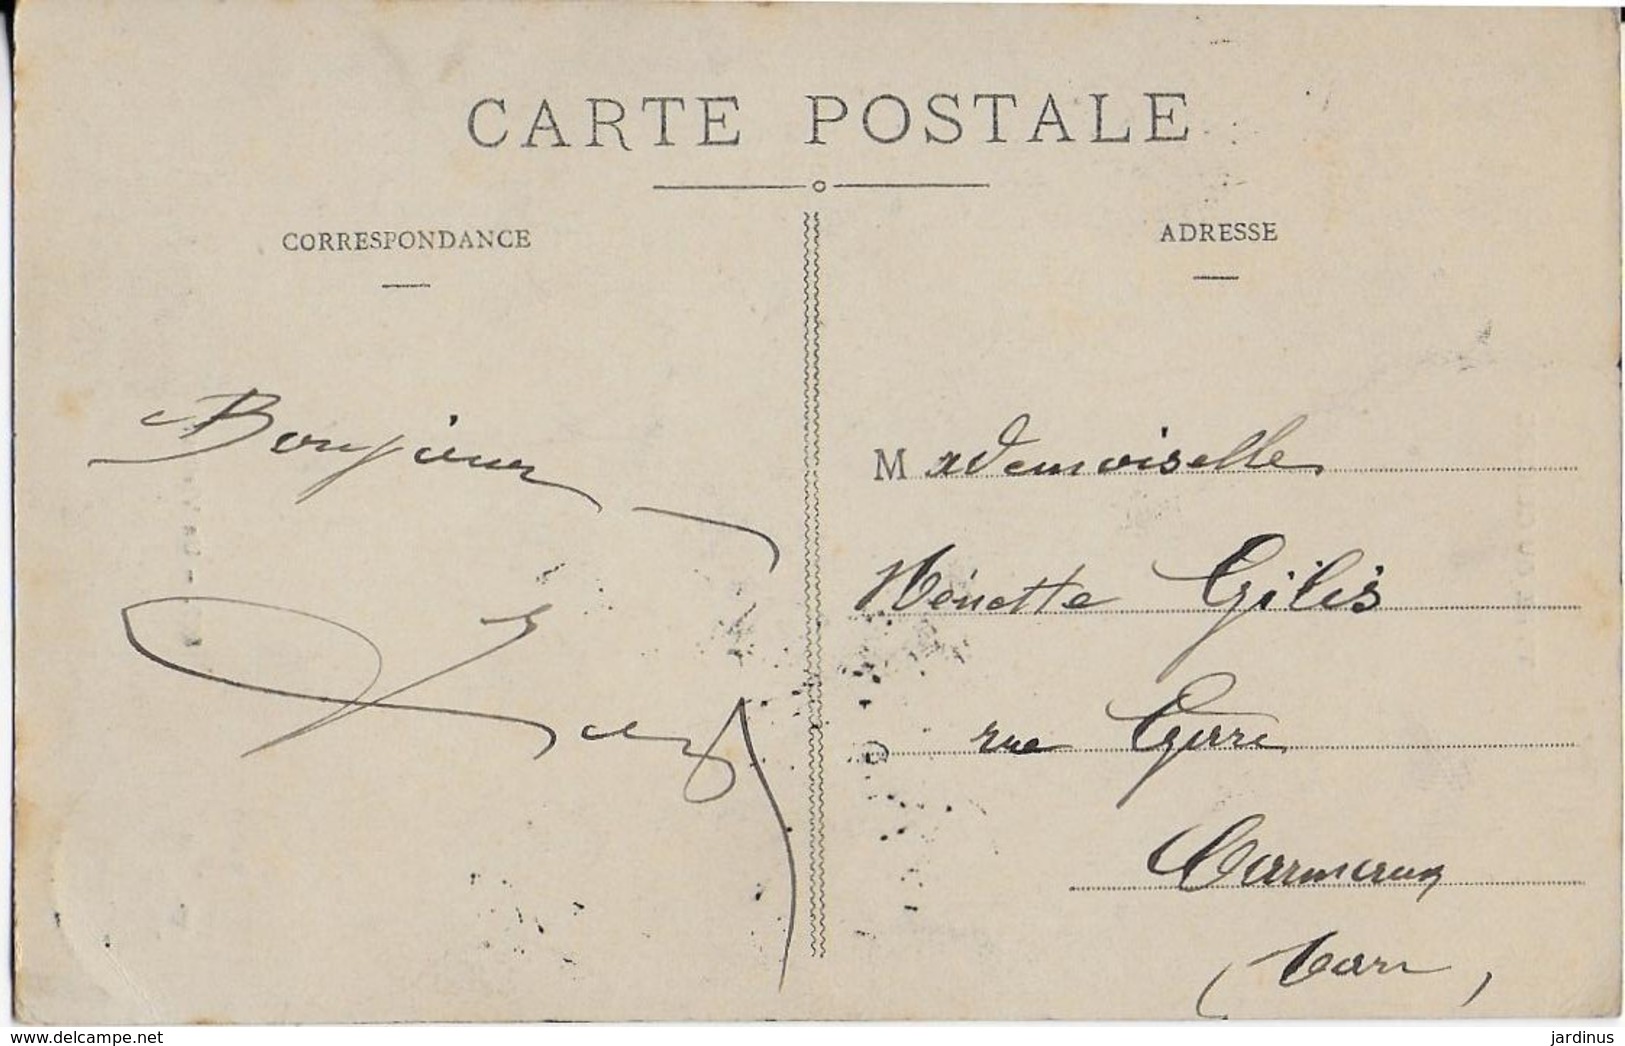 CARTE POSTALE
CORRESPONDANCE
ADRESSE
Bonjour
Mademoiselle
Nénette Gilis
rue Gare
Carmaux
(Tarn)
delcampe.net
jardinus